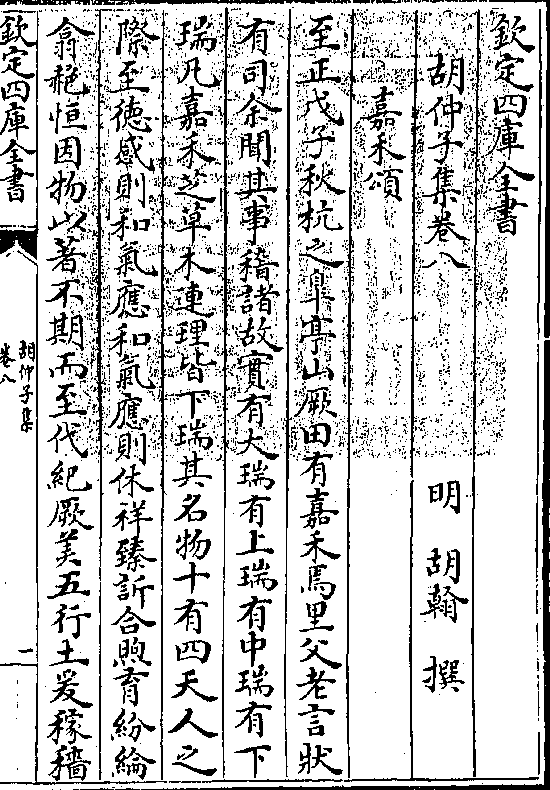 欽定四庫全書
胡仲子集卷八
明 胡翰 撰
嘉禾頌
至正戊子秋杭之臯亭山厥田有嘉禾焉里父老言狀
有司余聞其事稽諸故實有大瑞有上瑞有中瑞有下
瑞凡嘉禾芝草木連理皆下瑞其名物十有四天人之
際至德感則和氣應和氣應則休祥臻訢合煦育紛綸
翕赩恒因物以著不期而至代紀厥美五行土爰稼穡
欽定四庫全書
胡仲子集
卷八
一